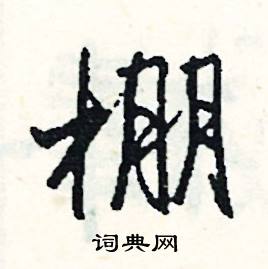 棚
词典网